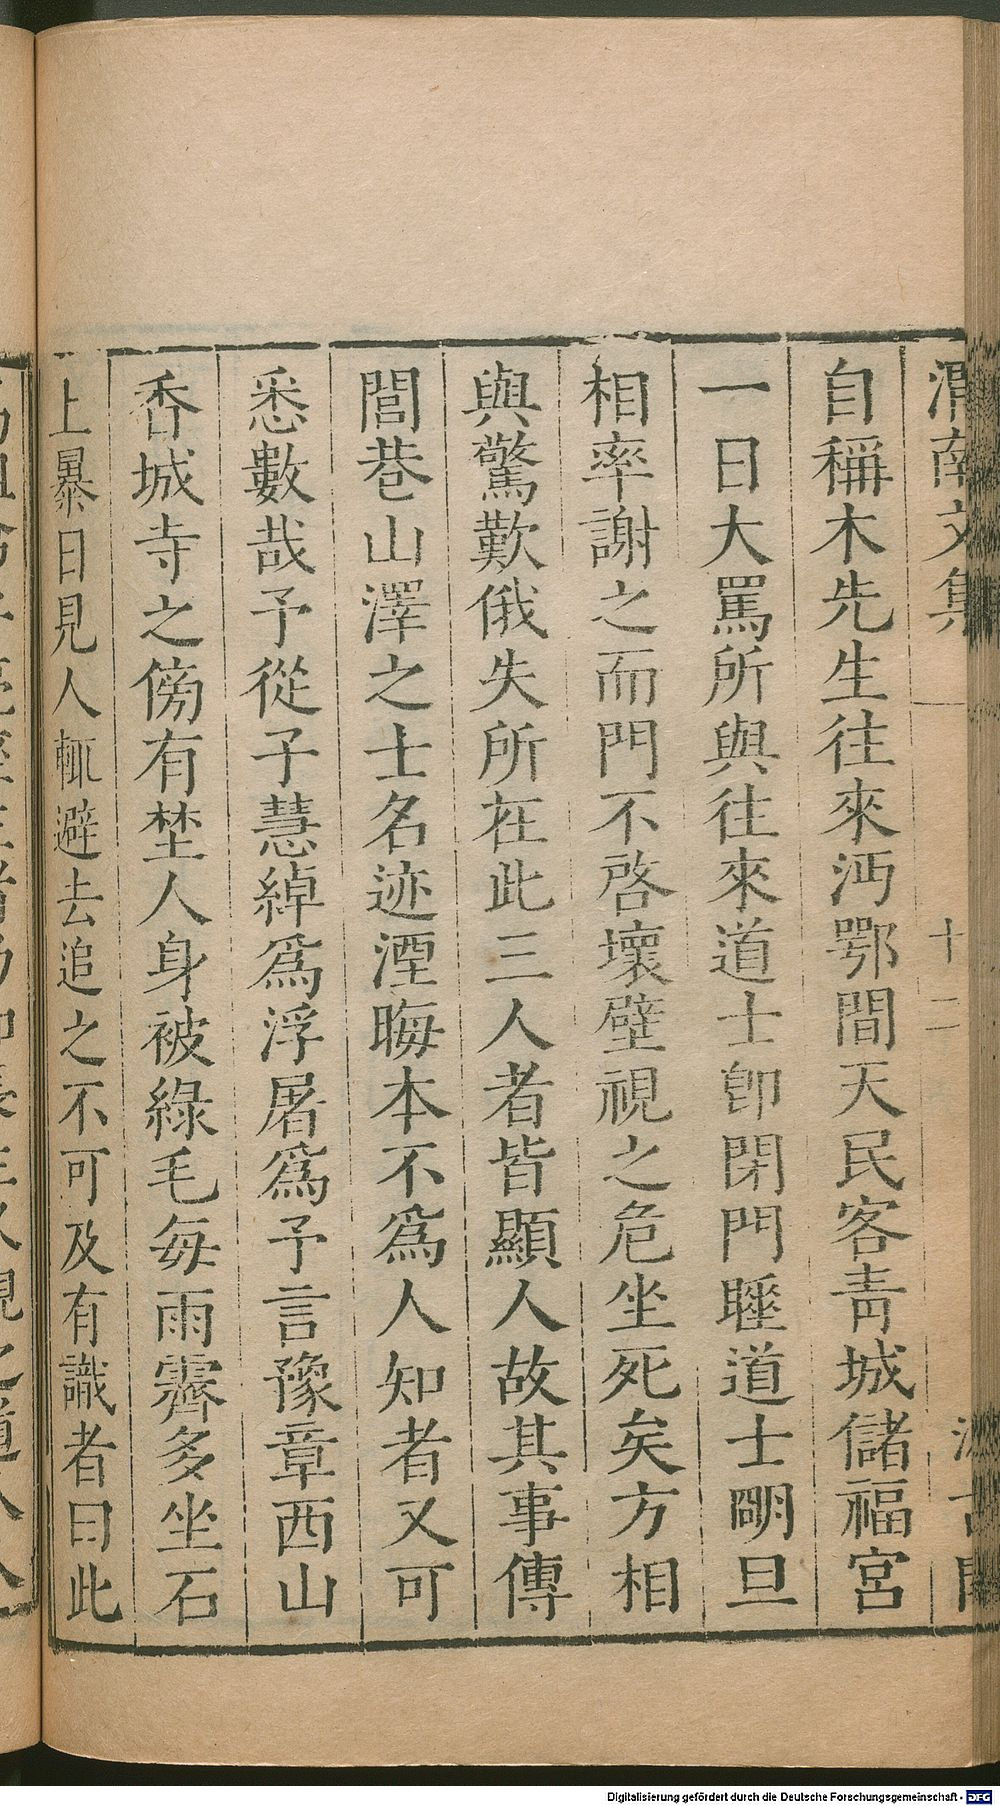 渭南文集 十二
自稱木先生往來沔鄂間天民客青城儲福宮
一日大罵所與往來道士卽閉門睡道士明旦
相率謝之而門不啓壞壁視之危坐死矣方相
與驚歎俄失所在此三人者皆顯人故其事傳
閭巷山澤之士名迹湮晦本不爲人知者又可
悉數哉予從子慧綽爲浮屠爲予言豫章西山
香城寺之傍有埜人身被綠毛每雨霽多坐石
上暴日見人輒避去追之不可及有識者曰此
Digitalisierung gefördert durch die Deutsche Forschungsgemeinschaft - DFG